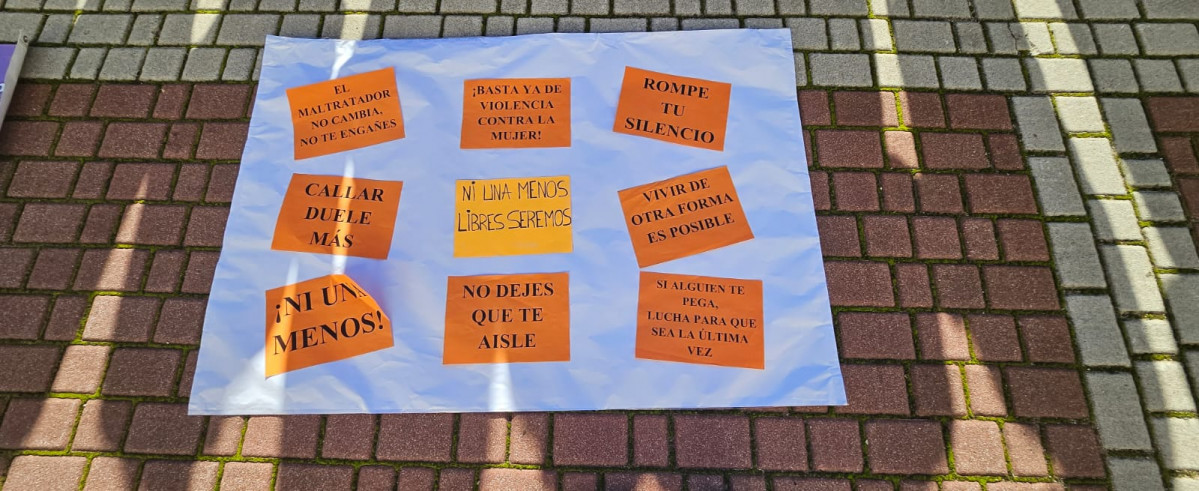 EL
MALTRATADOR
NO CAMBIA,
NO TE ENGAÑES
¡BASTA YA DE
VIOLENCIA
CONTRA LA
MUJER!
ROMPE
TU
SILENCIO
CALLAR
DUELE
MÁS
NI UNA MENOS
LIBRES SEREMOS
VIVIR DE
OTRA FORMA
ES POSIBLE
¡NI UNA
MENOS!
NO DEJES
QUE TE
AISLE
SI ALGUIEN TE
PEGA,
LUCHA PARA QUE
SEA LA ÚLTIMA
VEZ